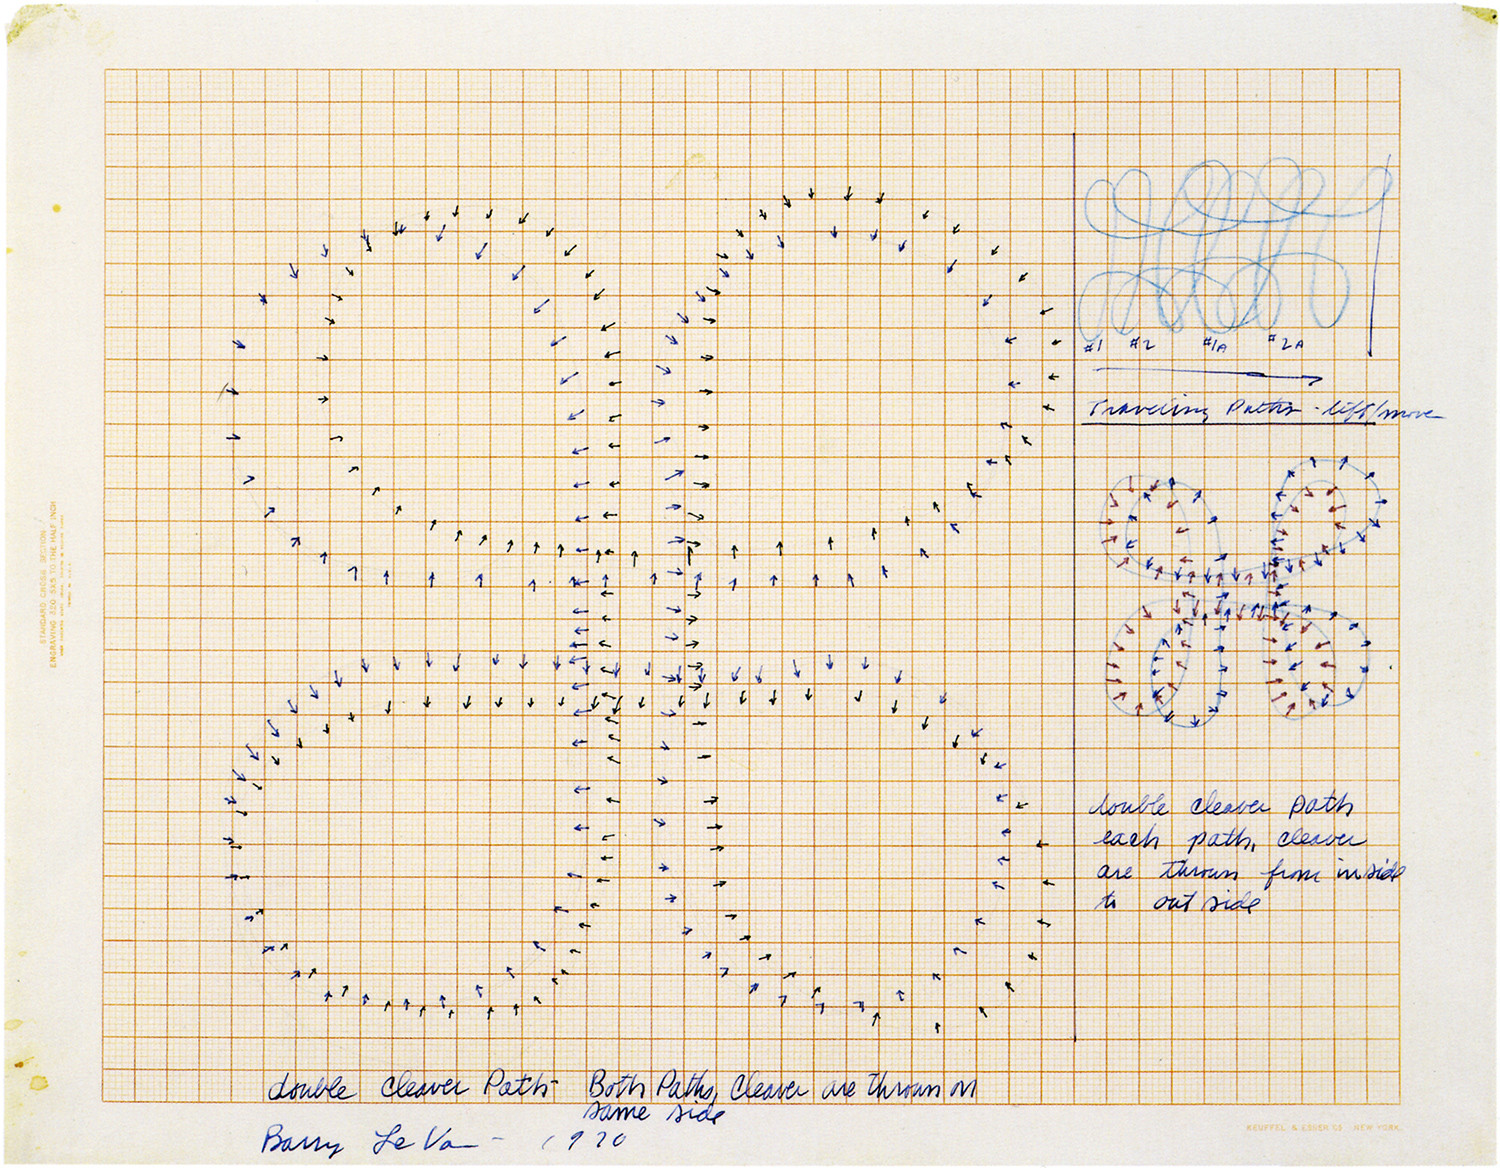 #1 #2 #1A #2A
Traveling Paths - lift/move
double cleaver path
each path, cleaver
are thrown from inside
to outside
double cleaver Path - Both Paths, Cleaver are thrown on
same side
Barry Le Va - 1970
STANDARD CROSS SECTION
ENGRAVING, 7X10 5X5 TO THE HALF INCH
KEUFFEL & ESSER CO. NEW YORK.